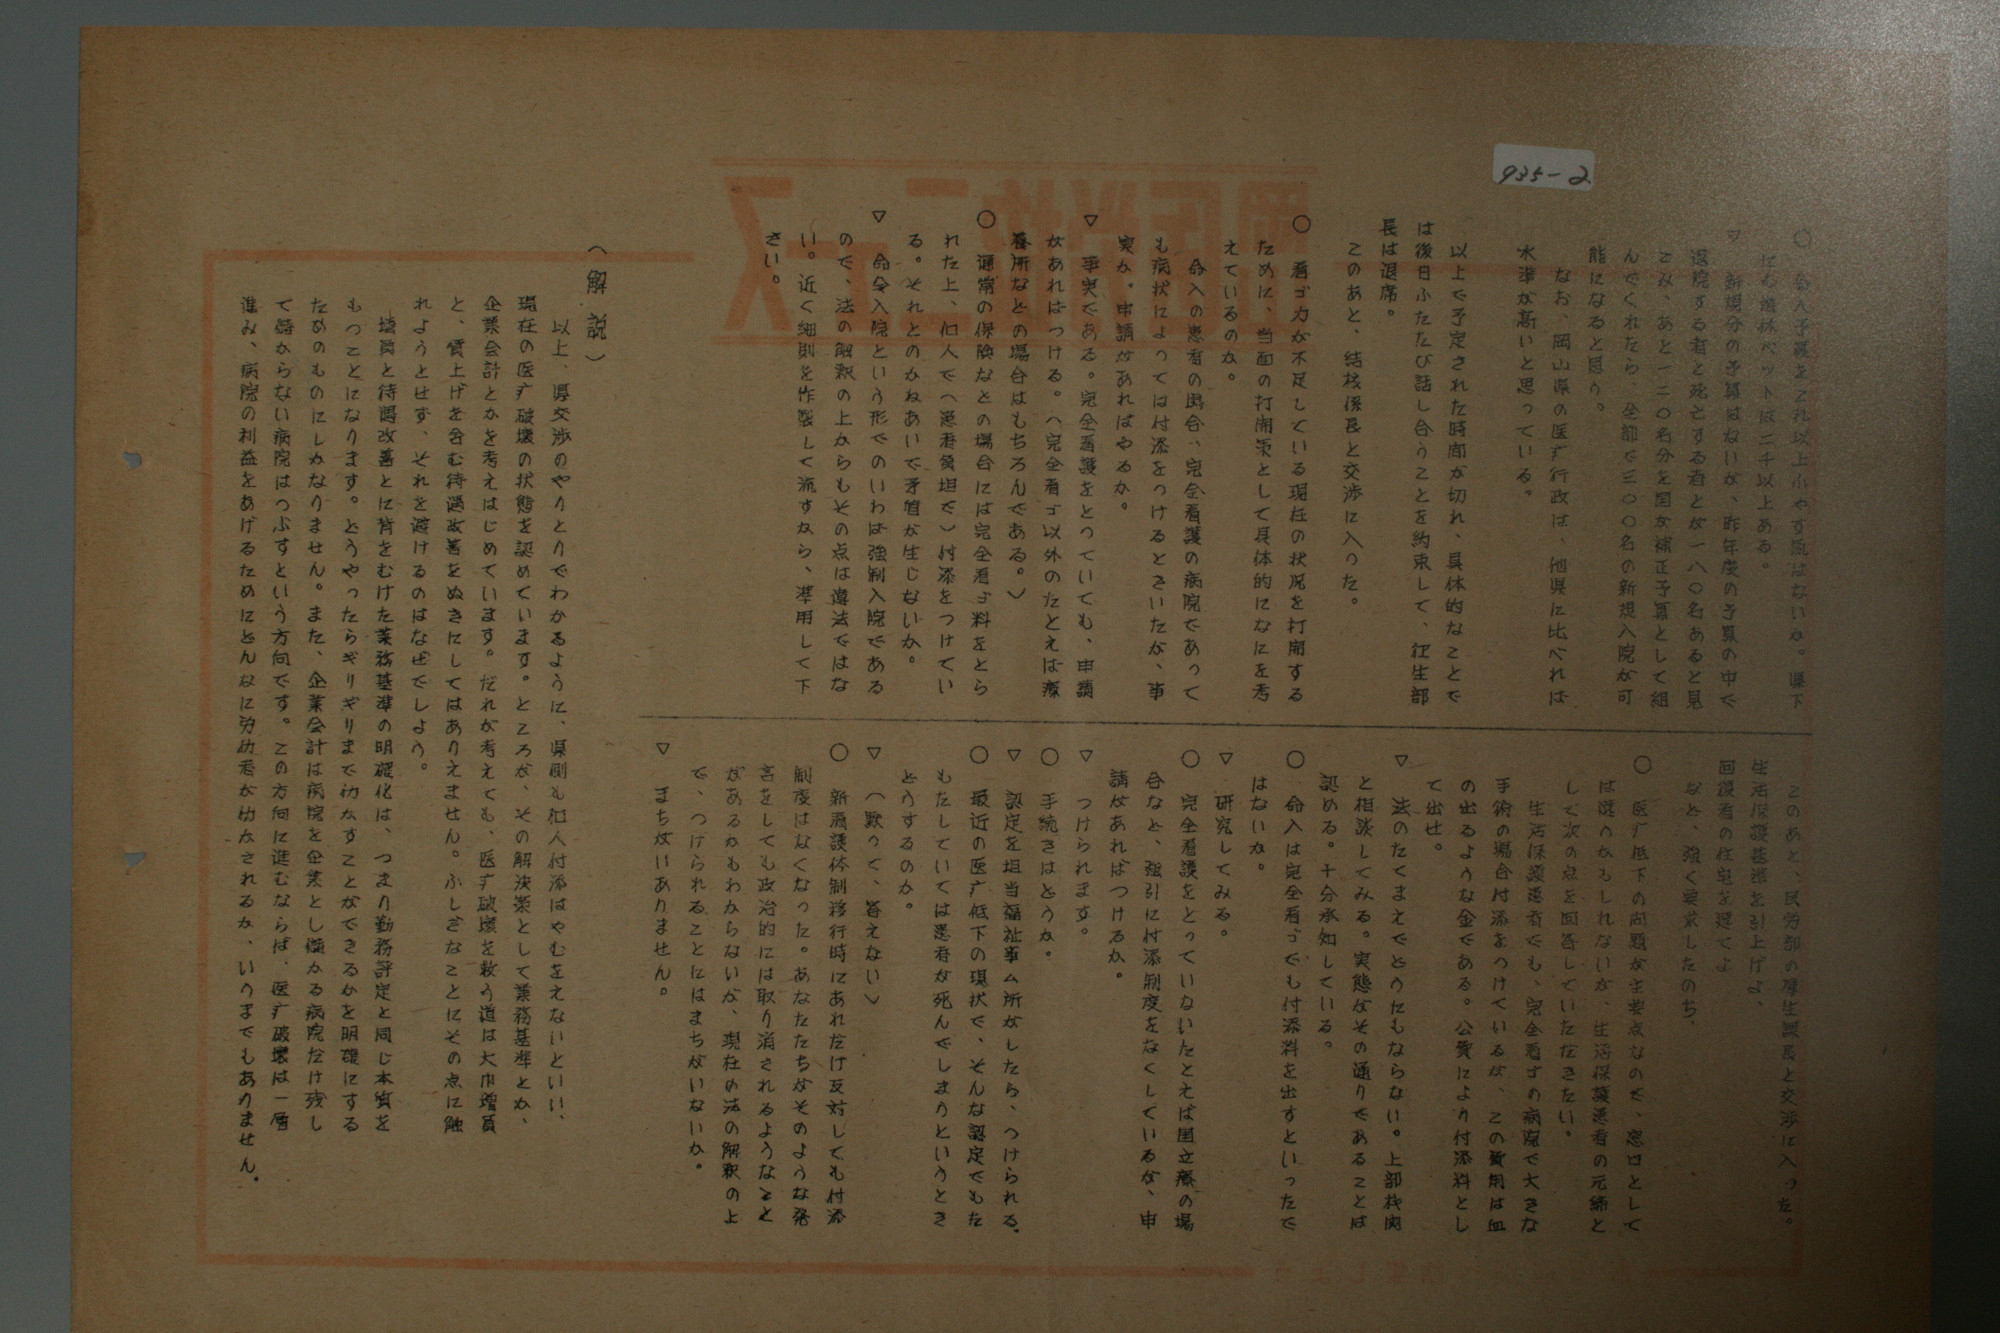 935-2
○ 命入予護をこれ以上ふやす気はないか。県下
にわ遊休ベットは二千以上ある。
▽ 新規分の予算はないが、昨年度の予算の中で
退院する者と死亡する者とが一八〇名あると見
こみ、あと一二〇名分を国が補正予算として組
んでくれたら、全部で三〇〇名の新規入院が可
能になると思う。
なお、岡山県の医疒行政は、他県に比べれば
水準が高いと思っている。
以上で予定された時間が切れ、具体的なことで
は後日ふたたび話し合うことを約束して、衛生部
長は退席。
このあと、結核係長と交渉に入った。
○ 看ゴ力が不足している現在の状況を打開する
ために、当面の打開策として具体的になにを考
えているのか。
命入の患者の場合、完全看護の病院であって
も病状によっては付添をつけるときいたが、事
実か。申請があればやるか。
▽ 事実である。完全看護をとっていても、申請
があればつける。（完全看ゴ以外のたとえば療
養所などの場合はもちろんである。）
○ 通常の保険などの場合には完全看ゴ料をとら
れた上、個人で（患者負担で）付添をつけてい
る。それとのかねあいで矛盾が生じないか。
▽ 命令入院という形でのいわば強制入院である
ので、法の解釈の上からもその点は違法ではな
い。近く細則を作製して流すから、準用して下
さい。
このあと、民労部の厚生課長と交渉に入った。
生活保護基準を引上げよ、
回復者の住宅を建てよ
など、強く要求したのち、
○ 医疒低下の問題が主要点なので、窓口として
は違うかもしれないが、生活保護患者の元締と
して次の点を回答していただきたい。
生活保護患者でも、完全看ゴの病院で大きな
手術の場合付添をつけているが、この費用は血
の出るような金である。公費により付添料とし
て出せ。
▽ 法のたてまえでどうにもならない。上部機関
と相談してみる。実態がその通りであることは
認める。十分承知している。
○ 命入は完全看ゴでも付添料を出すといったで
はないか。
▽ 研究してみる。
○ 完全看護をとっていないたとえば国立療の場
合など、強引に付添制度をなくしているが、申
請があればつけるか。
▽ つけられます。
○ 手続きはどうか。
▽ 認定を担当福祉事ム所がしたら、つけられる。
○ 最近の医疒低下の現状で、そんな認定でもた
もたしていては患者が死んでしまうというとき
どうするのか。
▽ （黙って、答えない）
○ 新看護体制移行時にあれだけ反対しても付添
制度はなくなった。あなたたちがそのような発
言をしても政治的には取り消されるようなこと
があるかもわからないが、現在の法の解釈の上
で、つけられることにはまちがいないか。
▽ まちがいありません。
（解説）
以上、県交渉のやりとりでわかるように、県側も個人付添はやむをえないといい、
現在の医疒破壊の状態を認めています。ところが、その解決策として業務基準とか、
企業会計とかを考えはじめています。だれが考えても、医疒破壊を救う道は大巾増員
と、賃上げを含む待遇改善をぬきにしてはありえません。ふしぎなことにその点に触
れようとせず、それを避けるのはなぜでしょう。
増員と待遇改善とに背をむけた業務基準の明確化は、つまり勤務評定と同じ本質を
もつことになります。どうやったらギリギリまで幼かすことができるかを明確にする
ためのものにしかなりません。また、企業会計は病院を企業とし儲かる病院だけ残し
て儲からない病院はつぶすという方向です。この方向に進むならば、医疒破壊は一層
進み、病院の利益をあげるためにどんなに労仂者が仂かされるか、いうまでもありません。
岡医労サニュース